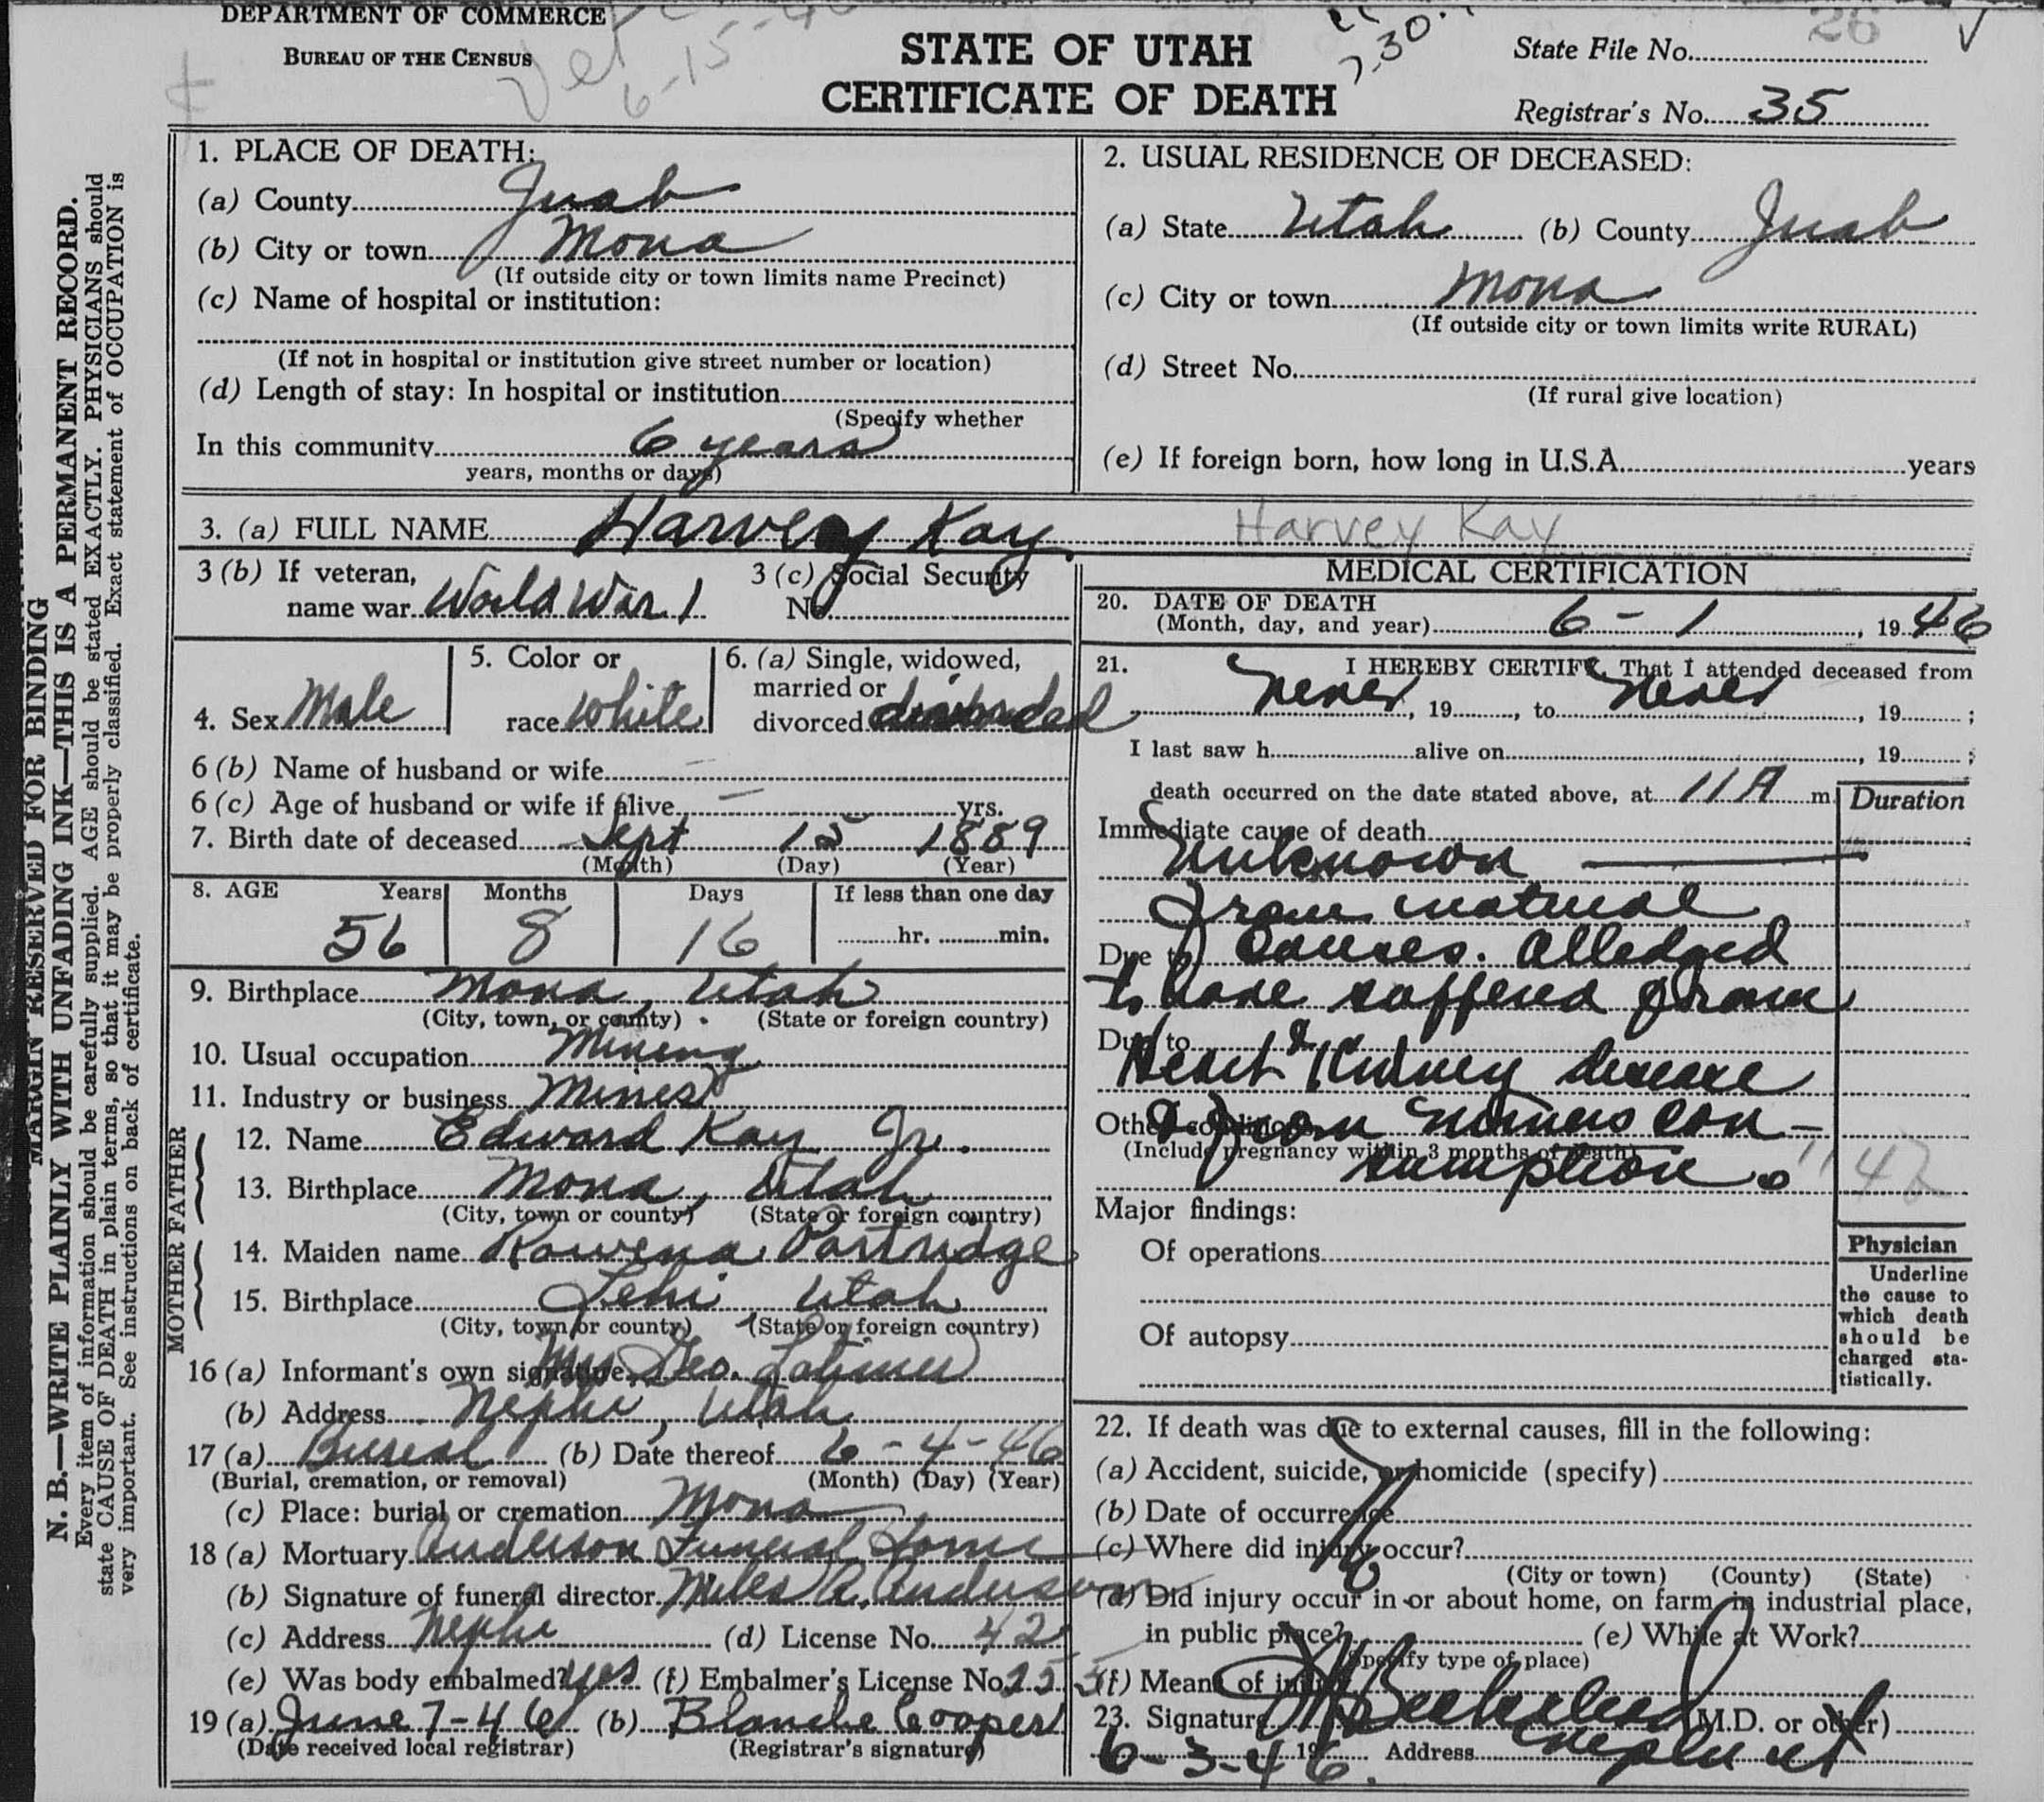 DEPARTMENT OF COMMERCE
BUREAU OF THE CENSUS
Vet 6-15-46
7-30
STATE OF UTAH
CERTIFICATE OF DEATH
State File No. 26
Registrar's No. 35
MARGIN RESERVED FOR BINDING
N. B.—WRITE PLAINLY WITH UNFADING INK—THIS IS A PERMANENT RECORD.
Every item of information should be carefully supplied. AGE should be stated EXACTLY. PHYSICIANS should
state CAUSE OF DEATH in plain terms, so that it may be properly classified. Exact statement of OCCUPATION is
very important. See instructions on back of certificate.
1. PLACE OF DEATH:
(a) County Juab
(b) City or town Mona
(If outside city or town limits name Precinct)
(c) Name of hospital or institution:
(If not in hospital or institution give street number or location)
(d) Length of stay: In hospital or institution
(Specify whether
In this community 6 years
years, months or days)
2. USUAL RESIDENCE OF DECEASED:
(a) State Utah (b) County Juab
(c) City or town Mona
(If outside city or town limits write RURAL)
(d) Street No.
(If rural give location)
(e) If foreign born, how long in U.S.A. years
3. (a) FULL NAME Harvey Kay. Harvey Kay
3 (b) If veteran, name war World War 1
3 (c) Social Security No.
4. Sex Male
5. Color or race White
6. (a) Single, widowed, married or divorced
6 (b) Name of husband or wife —
6 (c) Age of husband or wife if alive — yrs.
7. Birth date of deceased Sept 15 1889
(Month) (Day) (Year)
8. AGE Years Months Days If less than one day
56 8 16 hr. min.
9. Birthplace Mona, Utah
(City, town, or county) (State or foreign country)
10. Usual occupation Mining
11. Industry or business Mines
FATHER
12. Name Edward Kay Jr.
13. Birthplace Mona, Utah
(City, town or county) (State or foreign country)
MOTHER
14. Maiden name Rowena Partridge
15. Birthplace Lehi, Utah
(City, town or county) (State or foreign country)
16 (a) Informant's own signature Mrs Geo. Latimer
(b) Address Nephi, Utah
17 (a) Bureal (b) Date thereof 6-4-46
(Burial, cremation, or removal) (Month) (Day) (Year)
(c) Place: burial or cremation Mona
18 (a) Mortuary Anderson Funeral Home
(b) Signature of funeral director Miles R. Anderson
(c) Address Nephi (d) License No. 42
(e) Was body embalmed? yes (f) Embalmer's License No. 255
19 (a) June 7-46 (b) Blanche Cooper
(Date received local registrar) (Registrar's signature)
MEDICAL CERTIFICATION
20. DATE OF DEATH
(Month, day, and year) 6-1, 1946
21. I HEREBY CERTIFY, That I attended deceased from
never, 19 , to never, 19 ;
I last saw h alive on , 19 ;
death occurred on the date stated above, at 11 A m.
Duration
Immediate cause of death
Unknown —
From natural
Due to causes. Alledged
to have suffered from
Due to
Heart & Kidney disease
Other conditions & from miners con-
(Include pregnancy within 3 months of death)
sumption.
Major findings:
Of operations
Of autopsy
Physician
Underline
the cause to
which death
should be
charged sta-
tistically.
22. If death was due to external causes, fill in the following:
(a) Accident, suicide, or homicide (specify)
(b) Date of occurrence
(c) Where did injury occur?
(City or town) (County) (State)
(d) Did injury occur in or about home, on farm, in industrial place,
in public place? (e) While at Work?
(Specify type of place)
(f) Means of injury
23. Signature (M.D. or other)
6-3-46. 19 Address Nephi Ut